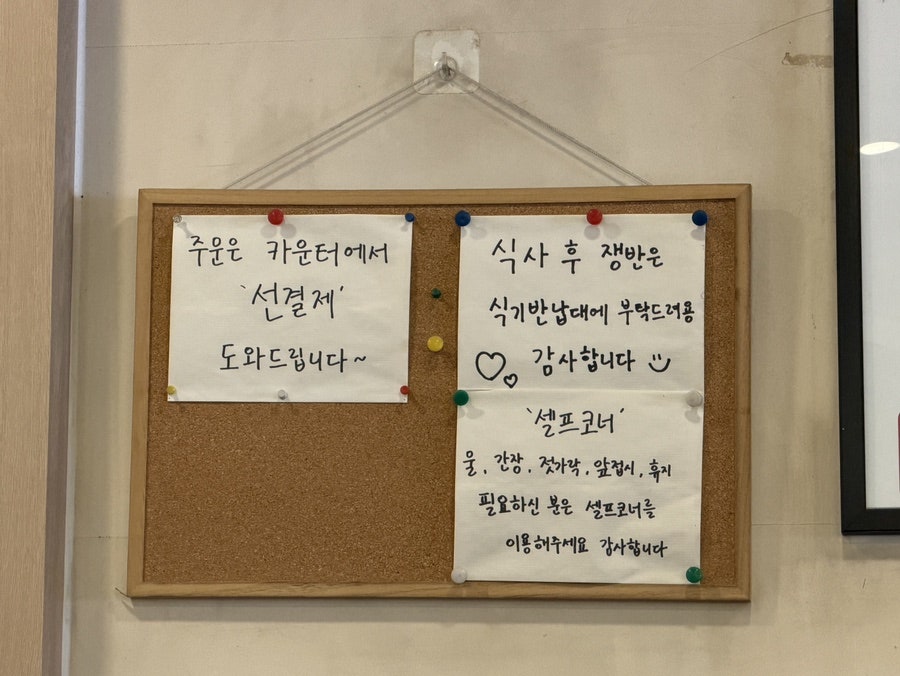 주문은 카운터에서
'선결제'
도와드립니다~
식사 후 쟁반은
식기반납대에 부탁드려용
감사합니다
'셀프코너'
물, 간장, 젓가락, 앞접시, 휴지
필요하신 분은 셀프코너를
이용해주세요 감사합니다